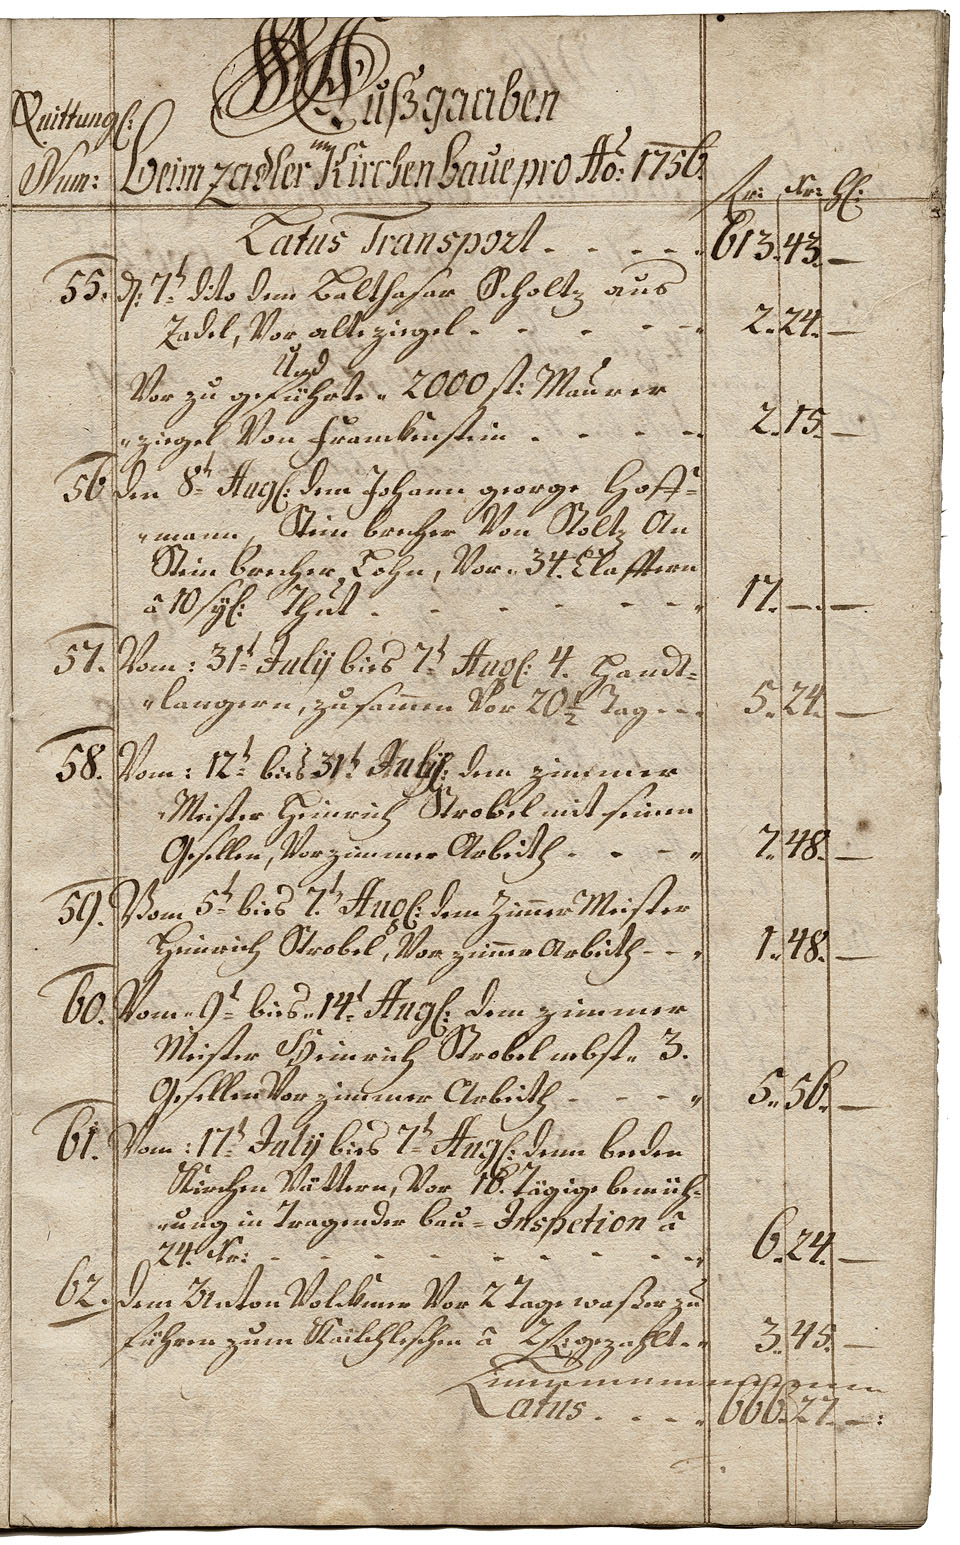 Außgaaben
Quittungs:
Num: beim Zadler Kirchen baue pro Ao: 1756.
Kr: hl:
Latus Transport - - - - - 613. 43. —
55. d: 7t dito dem Balthasar Scholtz aus
Zadel, Vor alte ziegel - - - - - 2. 24. —
Und
Vor zu geführte 2000 st: Maurer
ziegel Von Franckenstein - - - - 2. 15. —
56 den 8t Augl: dem Johann george Hoff=
mann, Stein brecher Von Stoltz An
Stein brecher Lohn, Vor 34. Claffern
â 10 sgl: Thut - - - - - - 17. —. —
57. Vom: 31t July bies 7t Augl: 4. Handt=
langern, zusammen Vor 20 1/2 Tag - - - 5. 24. —
58. Vom: 12t bies 31t July: dem zimmer
Meister Heinrich Strobel mit seinen
Gesellen, Vor zimmer Arbeith - - - - 7. 48. —
59. Vom 5t bies 7t Augl: dem Zimer Meister
Heinrich Strobel, Vor zimer Arbeith - - - 1. 48. —
60. Vom 9t bies 14t Augl: dem zimmer
Meister Heinrich Strobel nebst 3.
Gesellen Vor zimmer Arbeith - - - - 5. 56. —
61. Vom: 17t July bies 7t Augl: denn beden
Kirchen Vättern, Vor 16. Tägige bemüh=
ung in Tragender bau=Inspetion â
24. Kr: - - - - - - - - - 6. 24. —
62. dem Anton Volckmer Vor 2 Tage waßer zu
führen zum Kalchleschen â gezahlt 3. 45. —
Latus - - - - 666. 27. —: